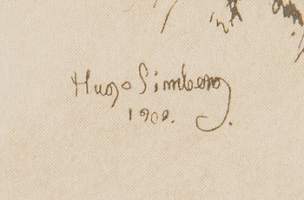 Hugo Simberg
1902.